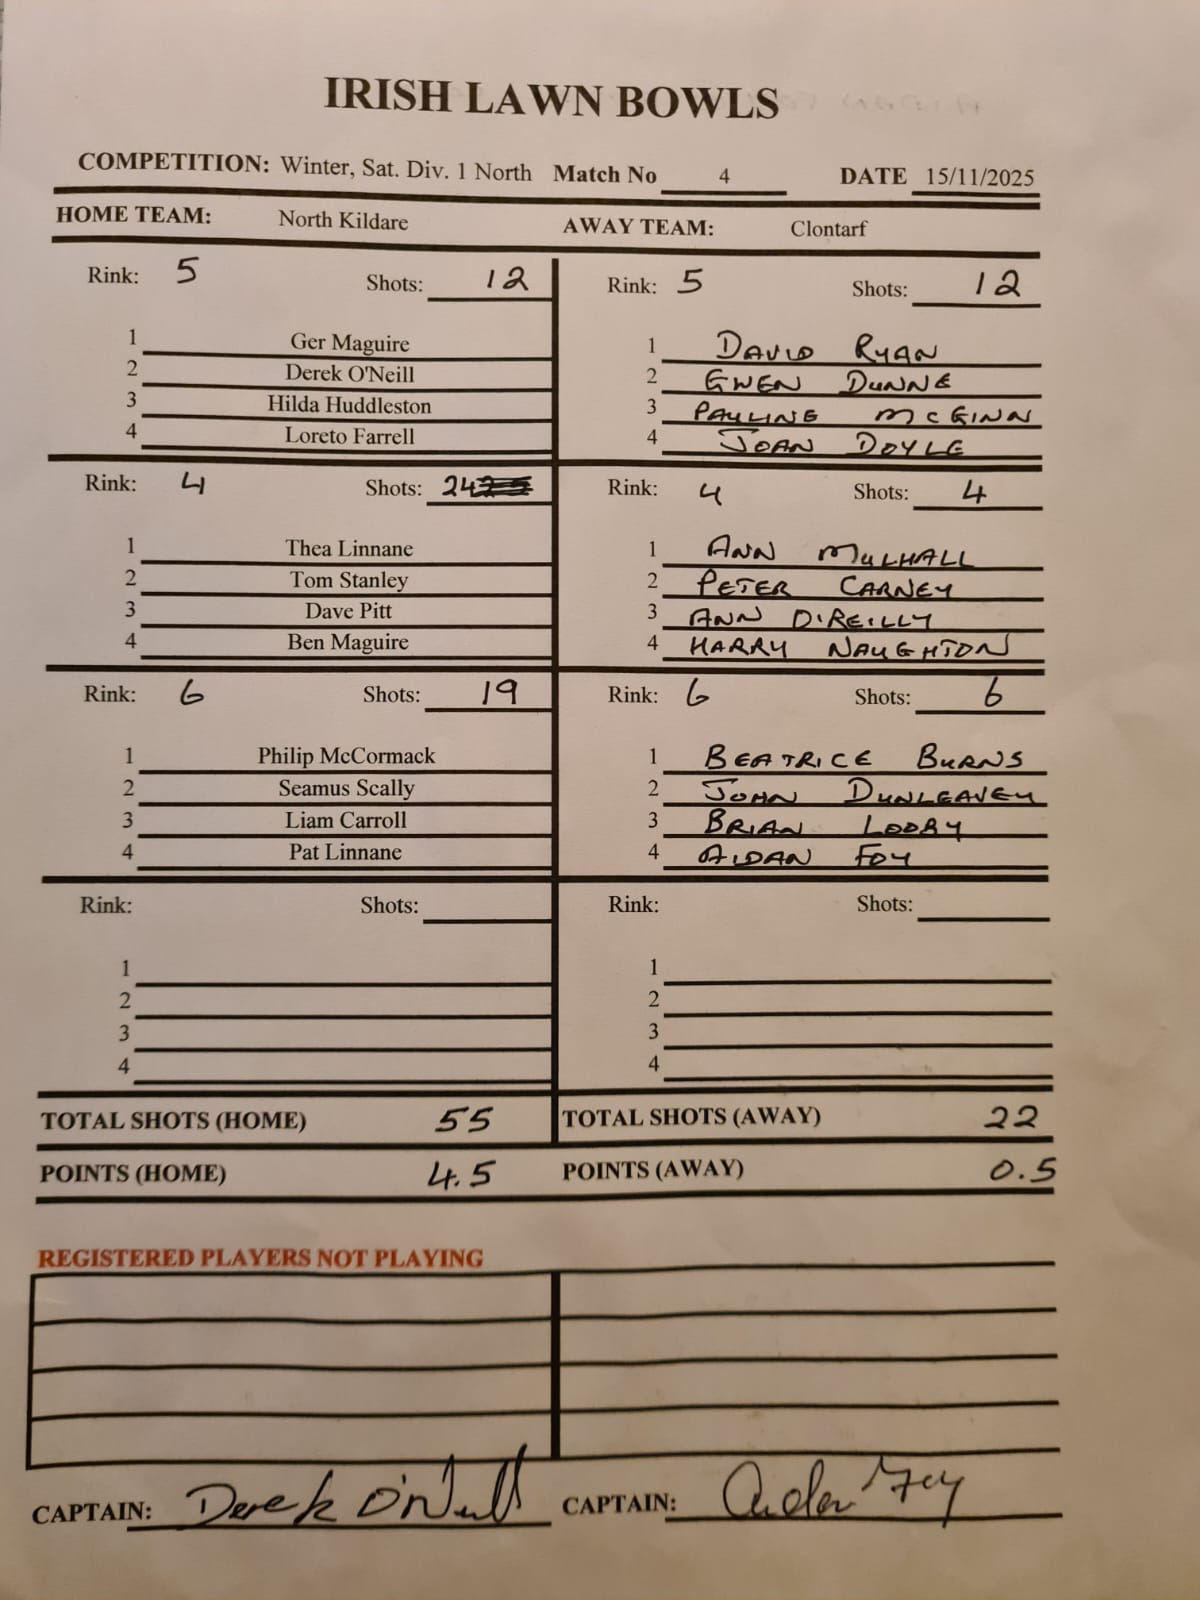 IRISH LAWN BOWLS
COMPETITION: Winter, Sat. Div. 1 North Match No 4 DATE 15/11/2025
HOME TEAM: North Kildare AWAY TEAM: Clontarf
Rink: 5 Shots: 12 Rink: 5 Shots: 12
1 Ger Maguire 1 DAVID RYAN
2 Derek O'Neill 2 GWEN DUNNE
3 Hilda Huddleston 3 PAULINE McGINN
4 Loreto Farrell 4 JOAN DOYLE
Rink: 4 Shots: 24 Rink: 4 Shots: 4
1 Thea Linnane 1 ANN MULHALL
2 Tom Stanley 2 PETER CARNEY
3 Dave Pitt 3 ANN O'REILLY
4 Ben Maguire 4 HARRY NAUGHTON
Rink: 6 Shots: 19 Rink: 6 Shots: 6
1 Philip McCormack 1 BEATRICE BURNS
2 Seamus Scally 2 JOHN DUNLEAVEY
3 Liam Carroll 3 BRIAN LOOBY
4 Pat Linnane 4 AIDAN FOY
Rink: Shots: Rink: Shots:
1 1
2 2
3 3
4 4
TOTAL SHOTS (HOME) 55 TOTAL SHOTS (AWAY) 22
POINTS (HOME) 4.5 POINTS (AWAY) 0.5
REGISTERED PLAYERS NOT PLAYING
CAPTAIN: Derek O'Neill CAPTAIN: Aidan Foy